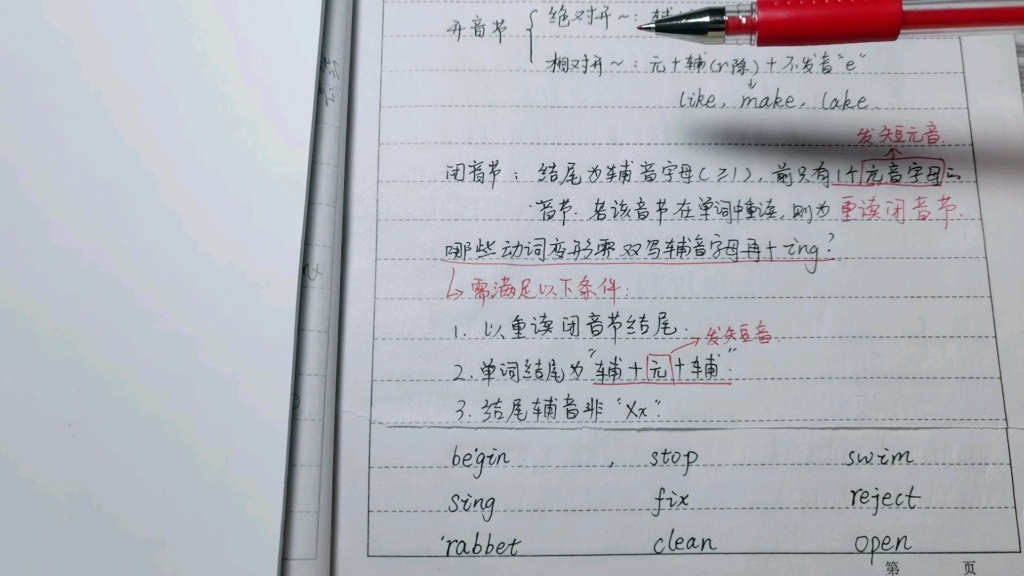 开音节 { 绝对开~: 辅
相对开~: 元+辅(r除)+不发音"e"
like, make, lake.
发短元音
闭音节: 结尾为辅音字母(≥1), 前只有1个元音字母的
音节. 若该音节在单词中重读, 则为重读闭音节.
哪些动词变形需双写辅音字母再+ing?
↳需满足以下条件:
1. 以重读闭音节结尾.
发短音
2. 单词结尾为"辅+元+辅".
3. 结尾辅音非"Xx".
begin , stop swim
sing fix reject
rabbet clean open
第 页